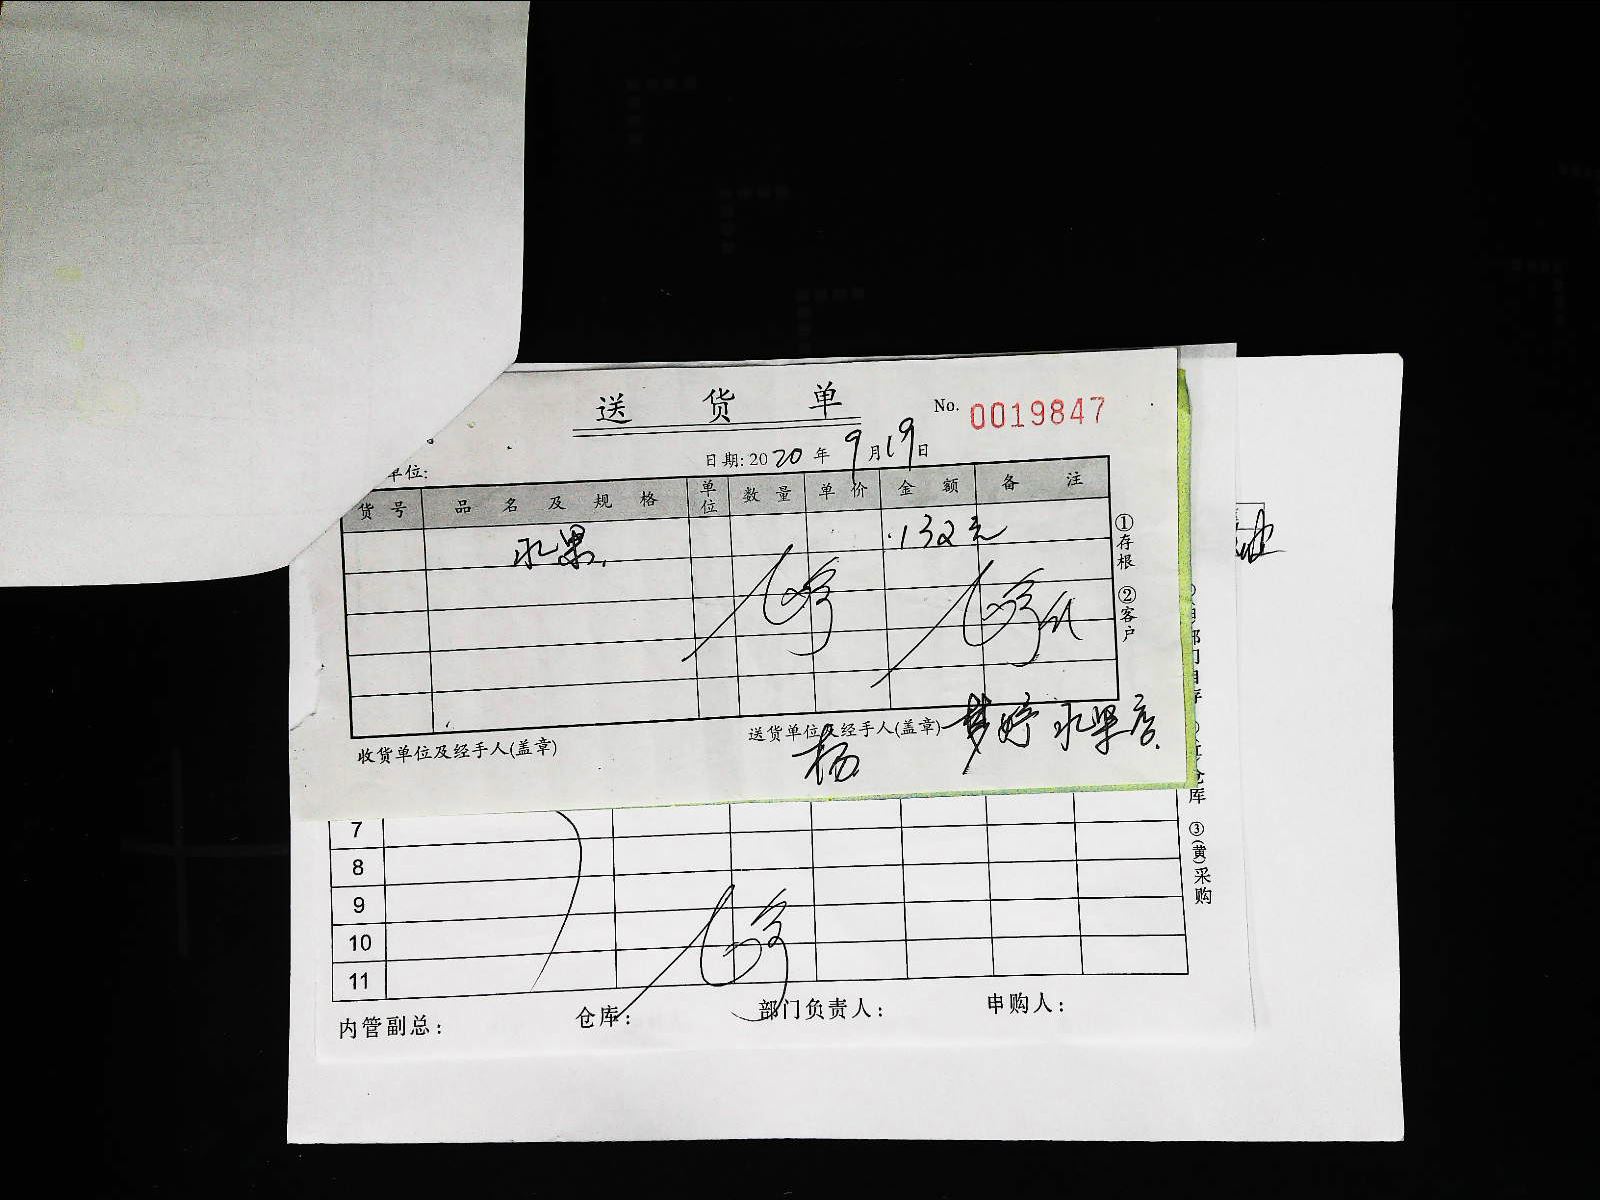 送货单
No. 0019847
日期: 2020年9月19日
单位:
货号 品名及规格 单位 数量 单价 金额 备注
水果 132元
①存根 ②客户
收货单位及经手人(盖章) 送货单位及经手人(盖章) 梦婷水果店
杨
7
8
9
10
11
库 ③(黄)采购
内管副总: 仓库: 部门负责人: 申购人: